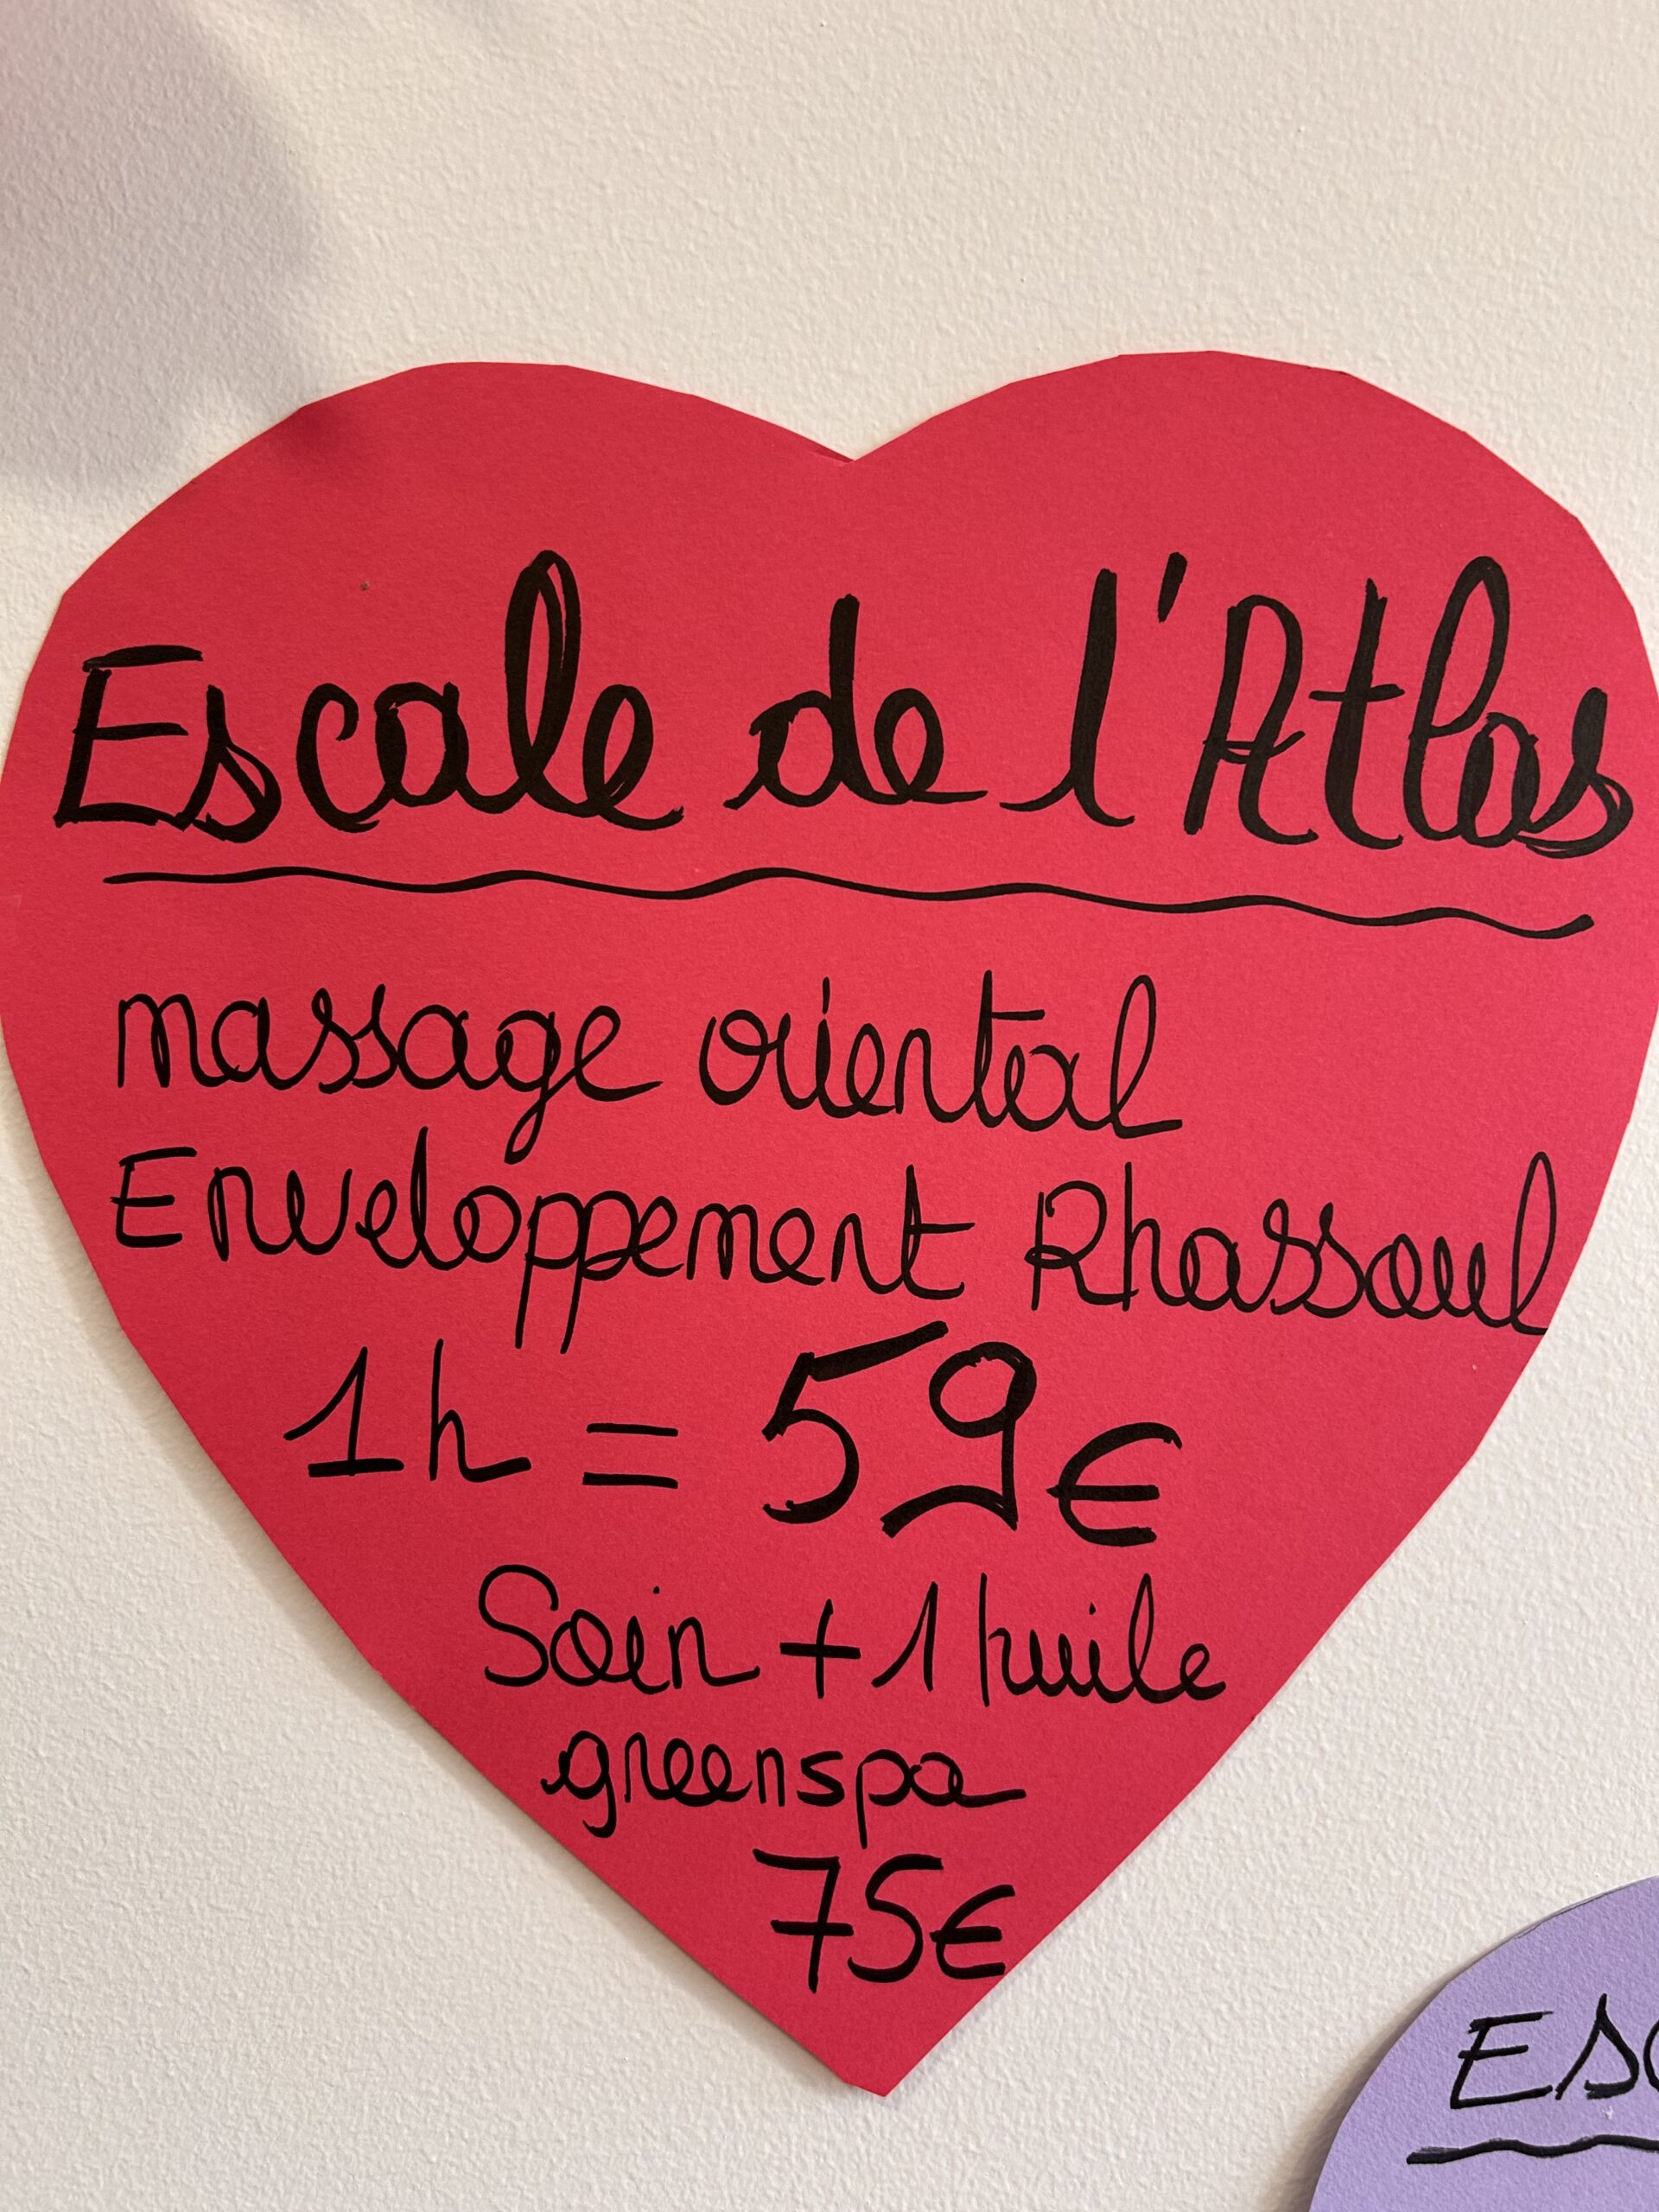 Escale de l'Atlas
massage oriental
Enveloppement Rhassoul
1h = 59€
Soin + 1 huile
greenspa
75€